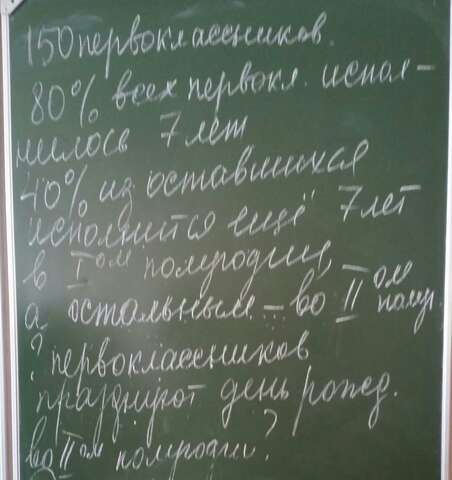 150 первоклассников.
80% всех первокл. испол-
нилось 7 лет
40% из оставшихся
исполнится ещё 7 лет
в I ом полугодии,
а остальным - во II ом полуг.
? первоклассников
празднуют день рожд.
во II ом полугодии?